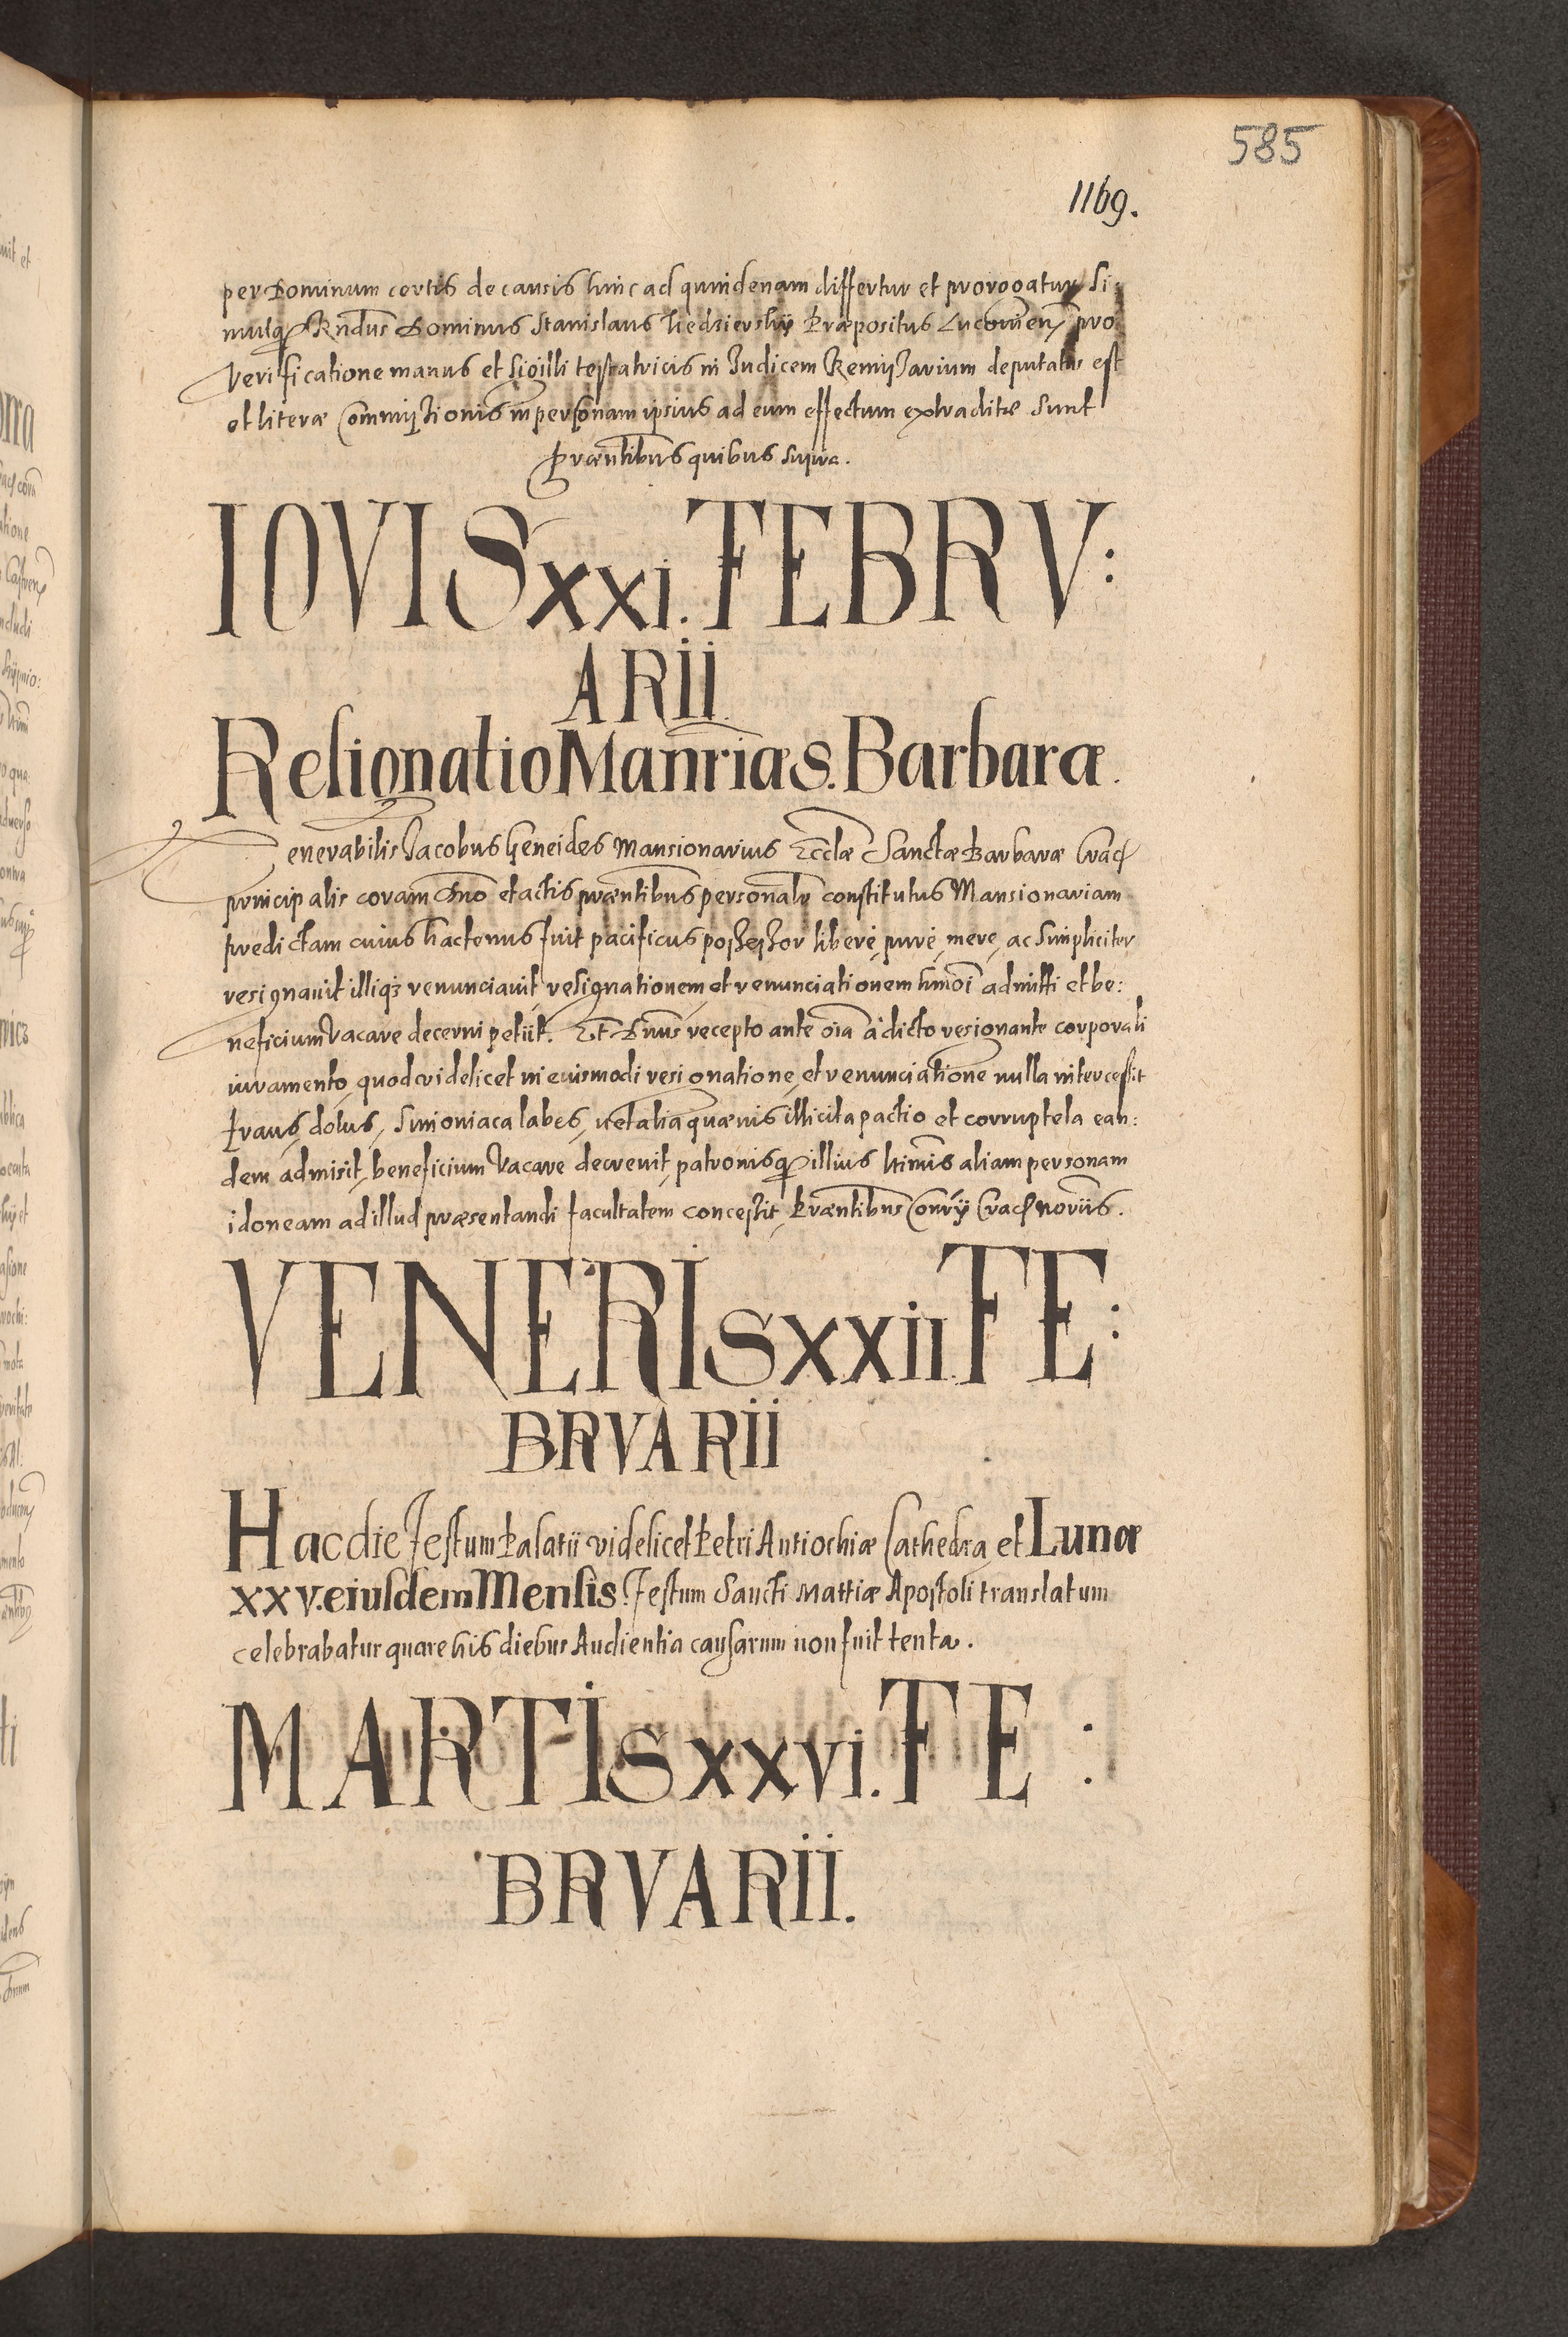 585
1169.
per Dominum certis de causis hinc ad quindenam differtur et prorogatur Si:
mulq Rndus Dominus Stanislaus Præpositus pro
Verificatione manus et Sigilli testatricis in Iudicem Remissarium deputatur est
et literæ Commissionis in personam ipsius ad eum effectum extraditæ sunt
Præntibus quibus supra.
IOVIS xxi. FEBRV:
ARII
Resignatio Manriæ S. Barbaræ.
Venerabilis Iacobus Geneides Mansionarius Ecclæ Sanctæ Barbaræ Crac
principalis coram Dno et actis præntibus personalr constitutus Mansionariam
predictam cuius hactenus fuit pacificus possessor liberè, purè, merè, ac Simpliciter
resignauit illiq3 renunciauit, resignationem et renunciationem hmoi admitti et be:
neficium Vacare decerni petiit. Et Dnus recepto ante oia à dicto resignante corporali
iuramento, quod videlicet in euismodi resignatione, et renunciatione nulla intercessit
fraus, dolus, Simoniaca labes, uel alia quæuis illicita pactio et corruptela ean:
dem admisit, beneficium Vacare decreuit, patronisq illius ltimis aliam personam
idoneam ad illud præsentandi facultatem concessit, Præntibus Conrij Crac noriis.
VENERIS xxii. FE:
BRVARII
Hac die Festum Palatii videlicet Petri Antiochiæ Cathedra et Lunæ
XXV. eiusdem Mensis. Festum Sancti Mattiæ Apostoli translatum
celebrabatur quare his diebus Audientia causarum non fuit tenta.
MARTIS xxvi. FE:
BRVARII.